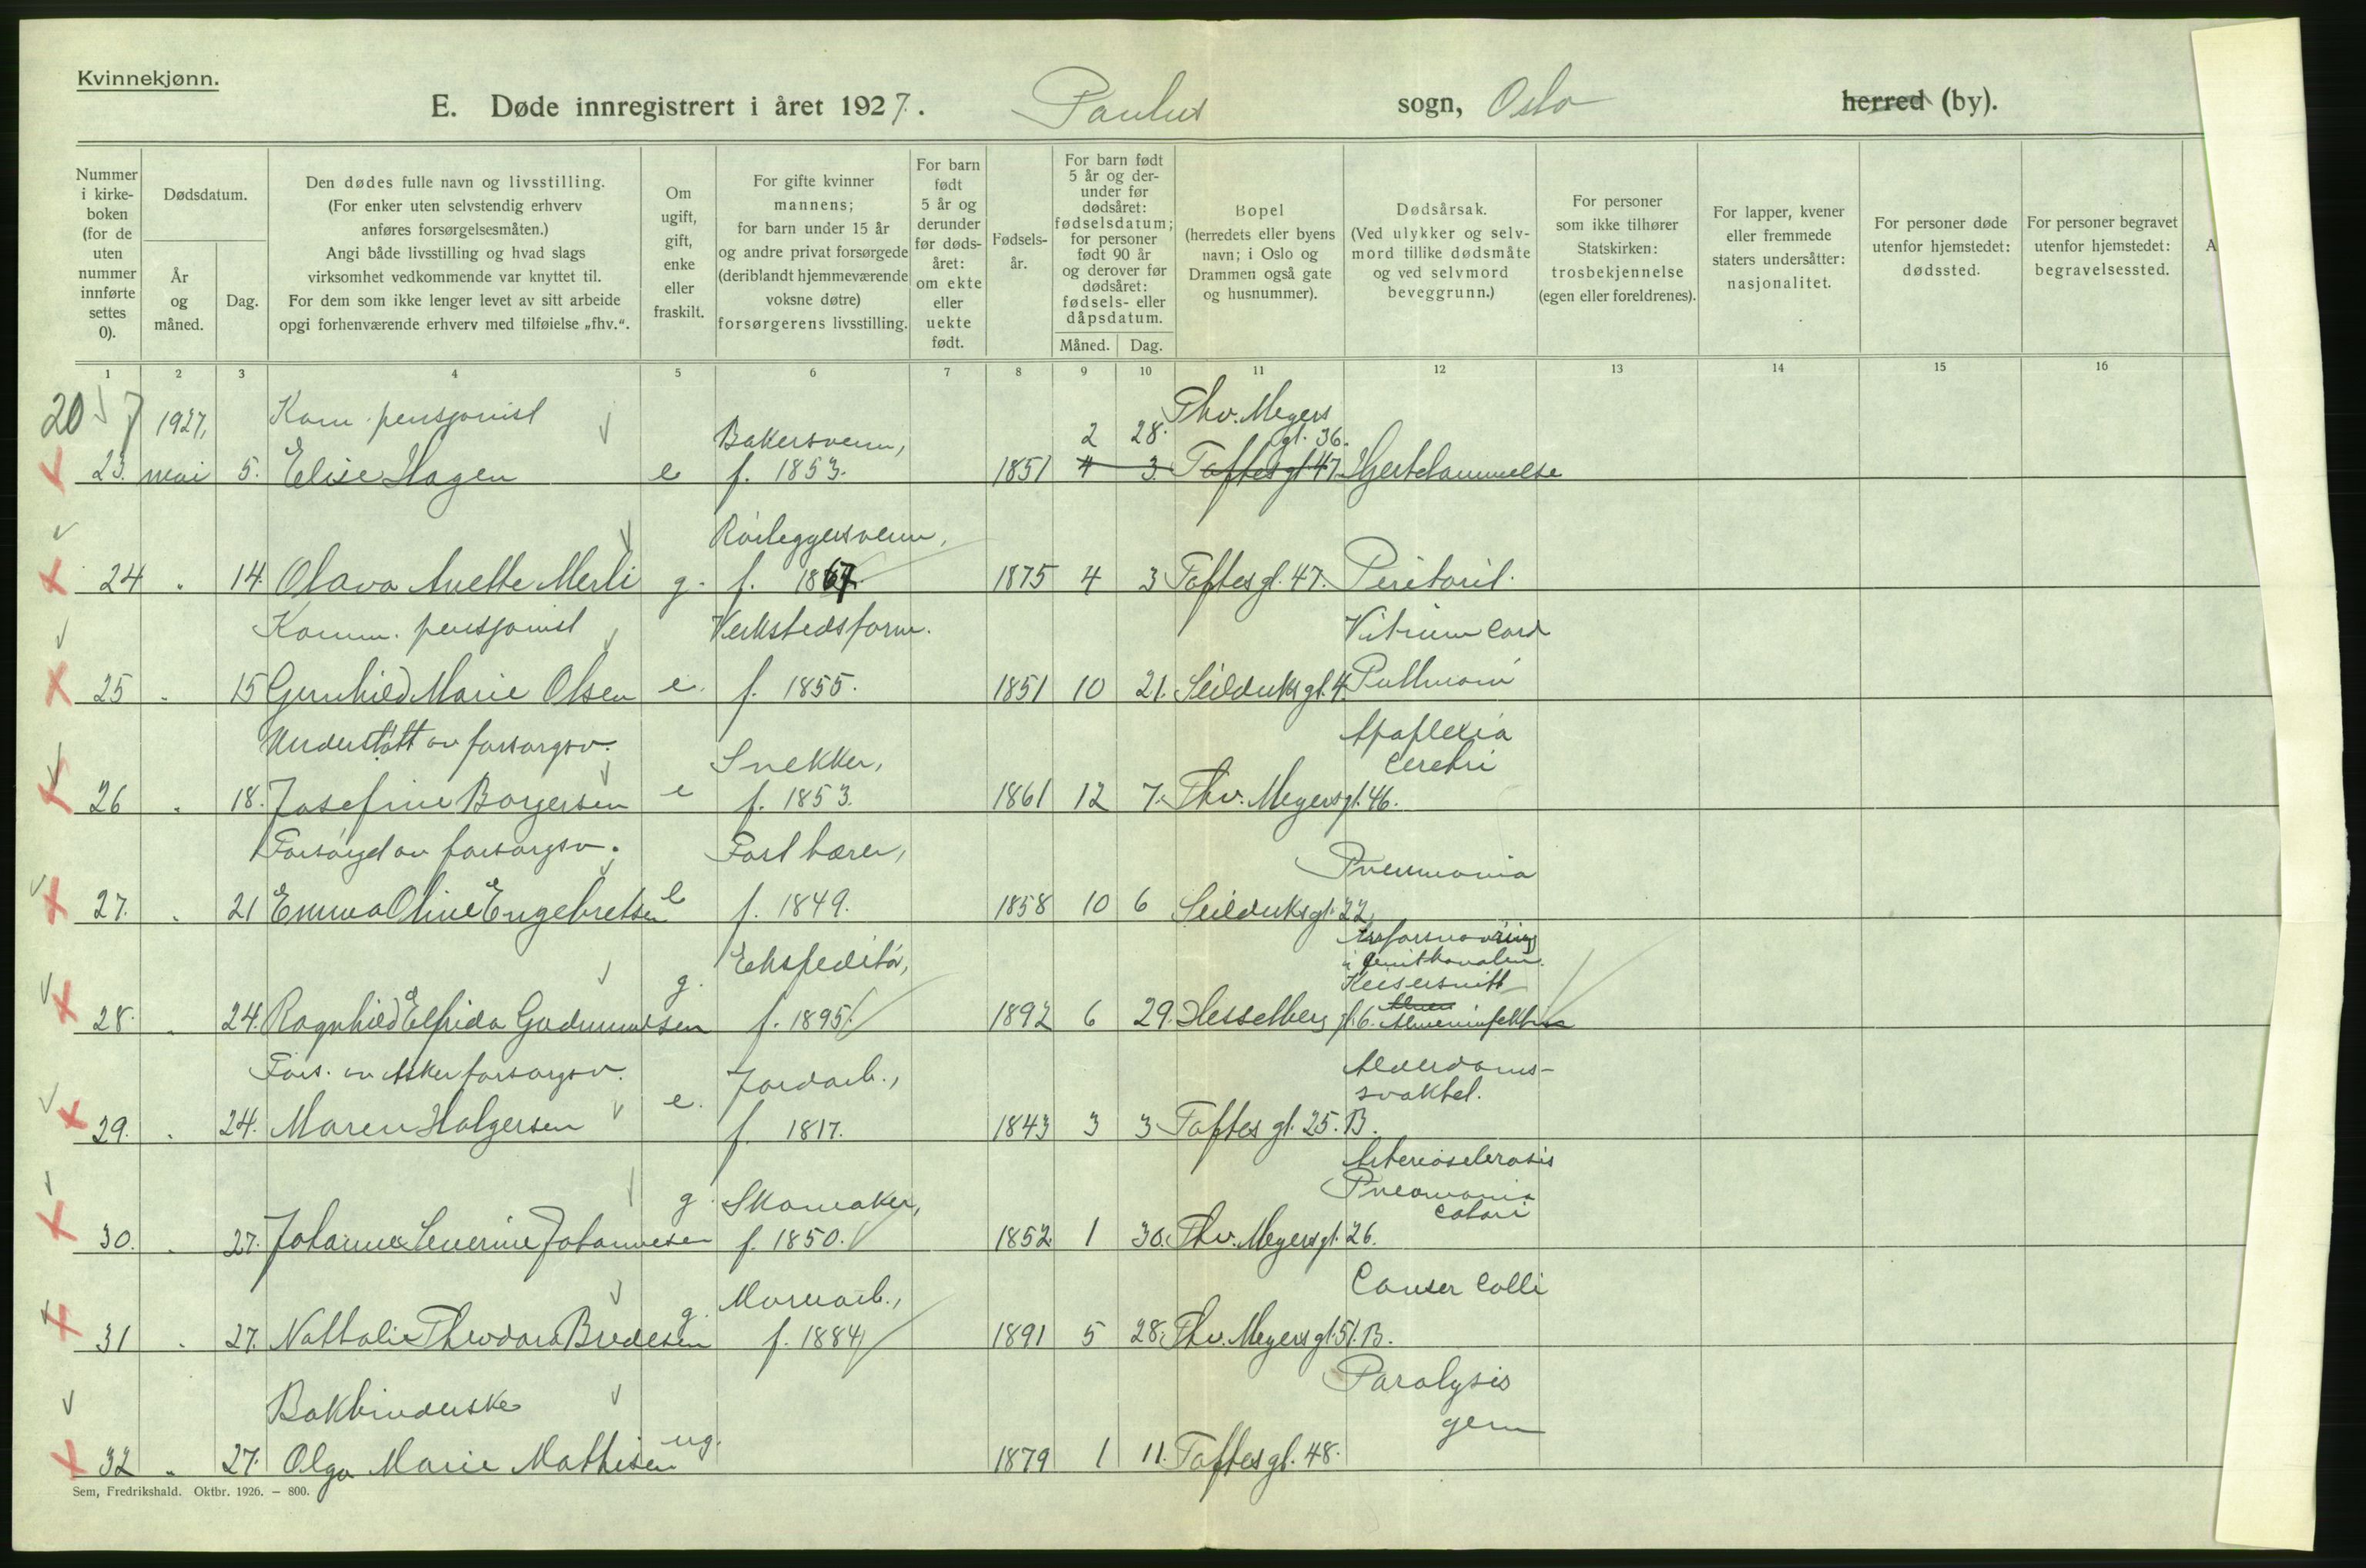 Kvinnekjønn.
E. Døde innregistrert i året 1927. Paulus sogn, Oslo herred (by).
Nummer i kirke-boken (for de uten nummer innførte settes 0).
Dødsdatum.
År og måned.
Dag.
Den dødes fulle navn og livsstilling.
(For enker uten selvstendig erhverv
anføres forsørgelsesmåten.)
Angi både livsstilling og hvad slags
virksomhet vedkommende var knyttet til.
For dem som ikke lenger levet av sitt arbeide
opgi forhenværende erhverv med tilføielse „fhv.“.
Om ugift, gift, enke eller fraskilt.
For gifte kvinner
mannens;
for barn under 15 år
og andre privat forsørgede
(deriblandt hjemmeværende
voksne døtre)
forsørgerens livsstilling.
For barn født 5 år og derunder før døds-året: om ekte eller uekte født.
Fødsels-år.
For barn født
5 år og der-
under før
dødsåret:
fødselsdatum;
for personer
født 90 år
og derover før
dødsåret:
fødsels- eller
dåpsdatum.
Måned. Dag.
Bopel
(herredets eller byens
navn; i Oslo og
Drammen også gate
og husnummer).
Dødsårsak.
(Ved ulykker og selv-
mord tillike dødsmåte
og ved selvmord
beveggrunn.)
For personer
som ikke tilhører
Statskirken:
trosbekjennelse
(egen eller foreldrenes).
For lapper, kvener
eller fremmede
staters undersåtter:
nasjonalitet.
For personer døde
utenfor hjemstedet:
dødssted.
For personer begravet
utenfor hjemstedet:
begravelsessted.
A
1 2 3 4 5 6 7 8 9 10 11 12 13 14 15 16
20 7 1927, Kom. pensjonist Bakersvenn, 2 28. Thv. Meyers gt. 36.
23. mai 5. Elise Hagen e f. 1853. 1851 4 3. Toftes gt 47. Hjertelammelse
Rörleggersvenn,
24 " 14. Olava Anette Merli g. f. 1867. 1875 4 3 Toftes gt. 47. Peritonit.
Komm. pensjonist Verkstedsform. Vitium Cord
25 " 15 Gunhild Marie Olsen e. f. 1855. 1851 10 21. Seilduksgt. 4.
Understött av forsorgsv. Snekker, Apoplexia Cerebri
26 " 18. Josefine Borgersen e f. 1853. 1861 12 7. Thv. Meyersgt. 46.
Forsörget av forsorgsv. Postbærer, Pneumonia
27. " 21 Emma Oline Engebretsen e f. 1849. 1858 10 6 Seilduksgt. 22.
Ekspeditör, Keisersnitt
28. " 24. Ragnhild Elfrida Gudmundsen g. f. 1895. 1892 6 29. Hesselberg gt. 6.
Fors. av Asker forsorgsv. Jordarb., Alderdoms-svakhet.
29. " 24. Maren Holgersen e. f. 1817. 1843 3 3 Toftes gt. 25. B.
Skomaker, Arteriosclerosis Pneomonia
30. " 27. Johanne Severine Johannesen g. f. 1850. 1852 1 30. Thv. Meyersgt. 26.
Murerarb., Canser Colli
31 " 27. Nathalie Theodora Bredesen g. f. 1884 1891 5 28. Thv. Meyersgt. 51. B.
Bokbinderske Paralysis gen
32 " 27. Olga Marie Mathisen ug. 1879 1 11. Toftes gt. 48.
Sem, Fredrikshald. Oktbr. 1926. — 800.